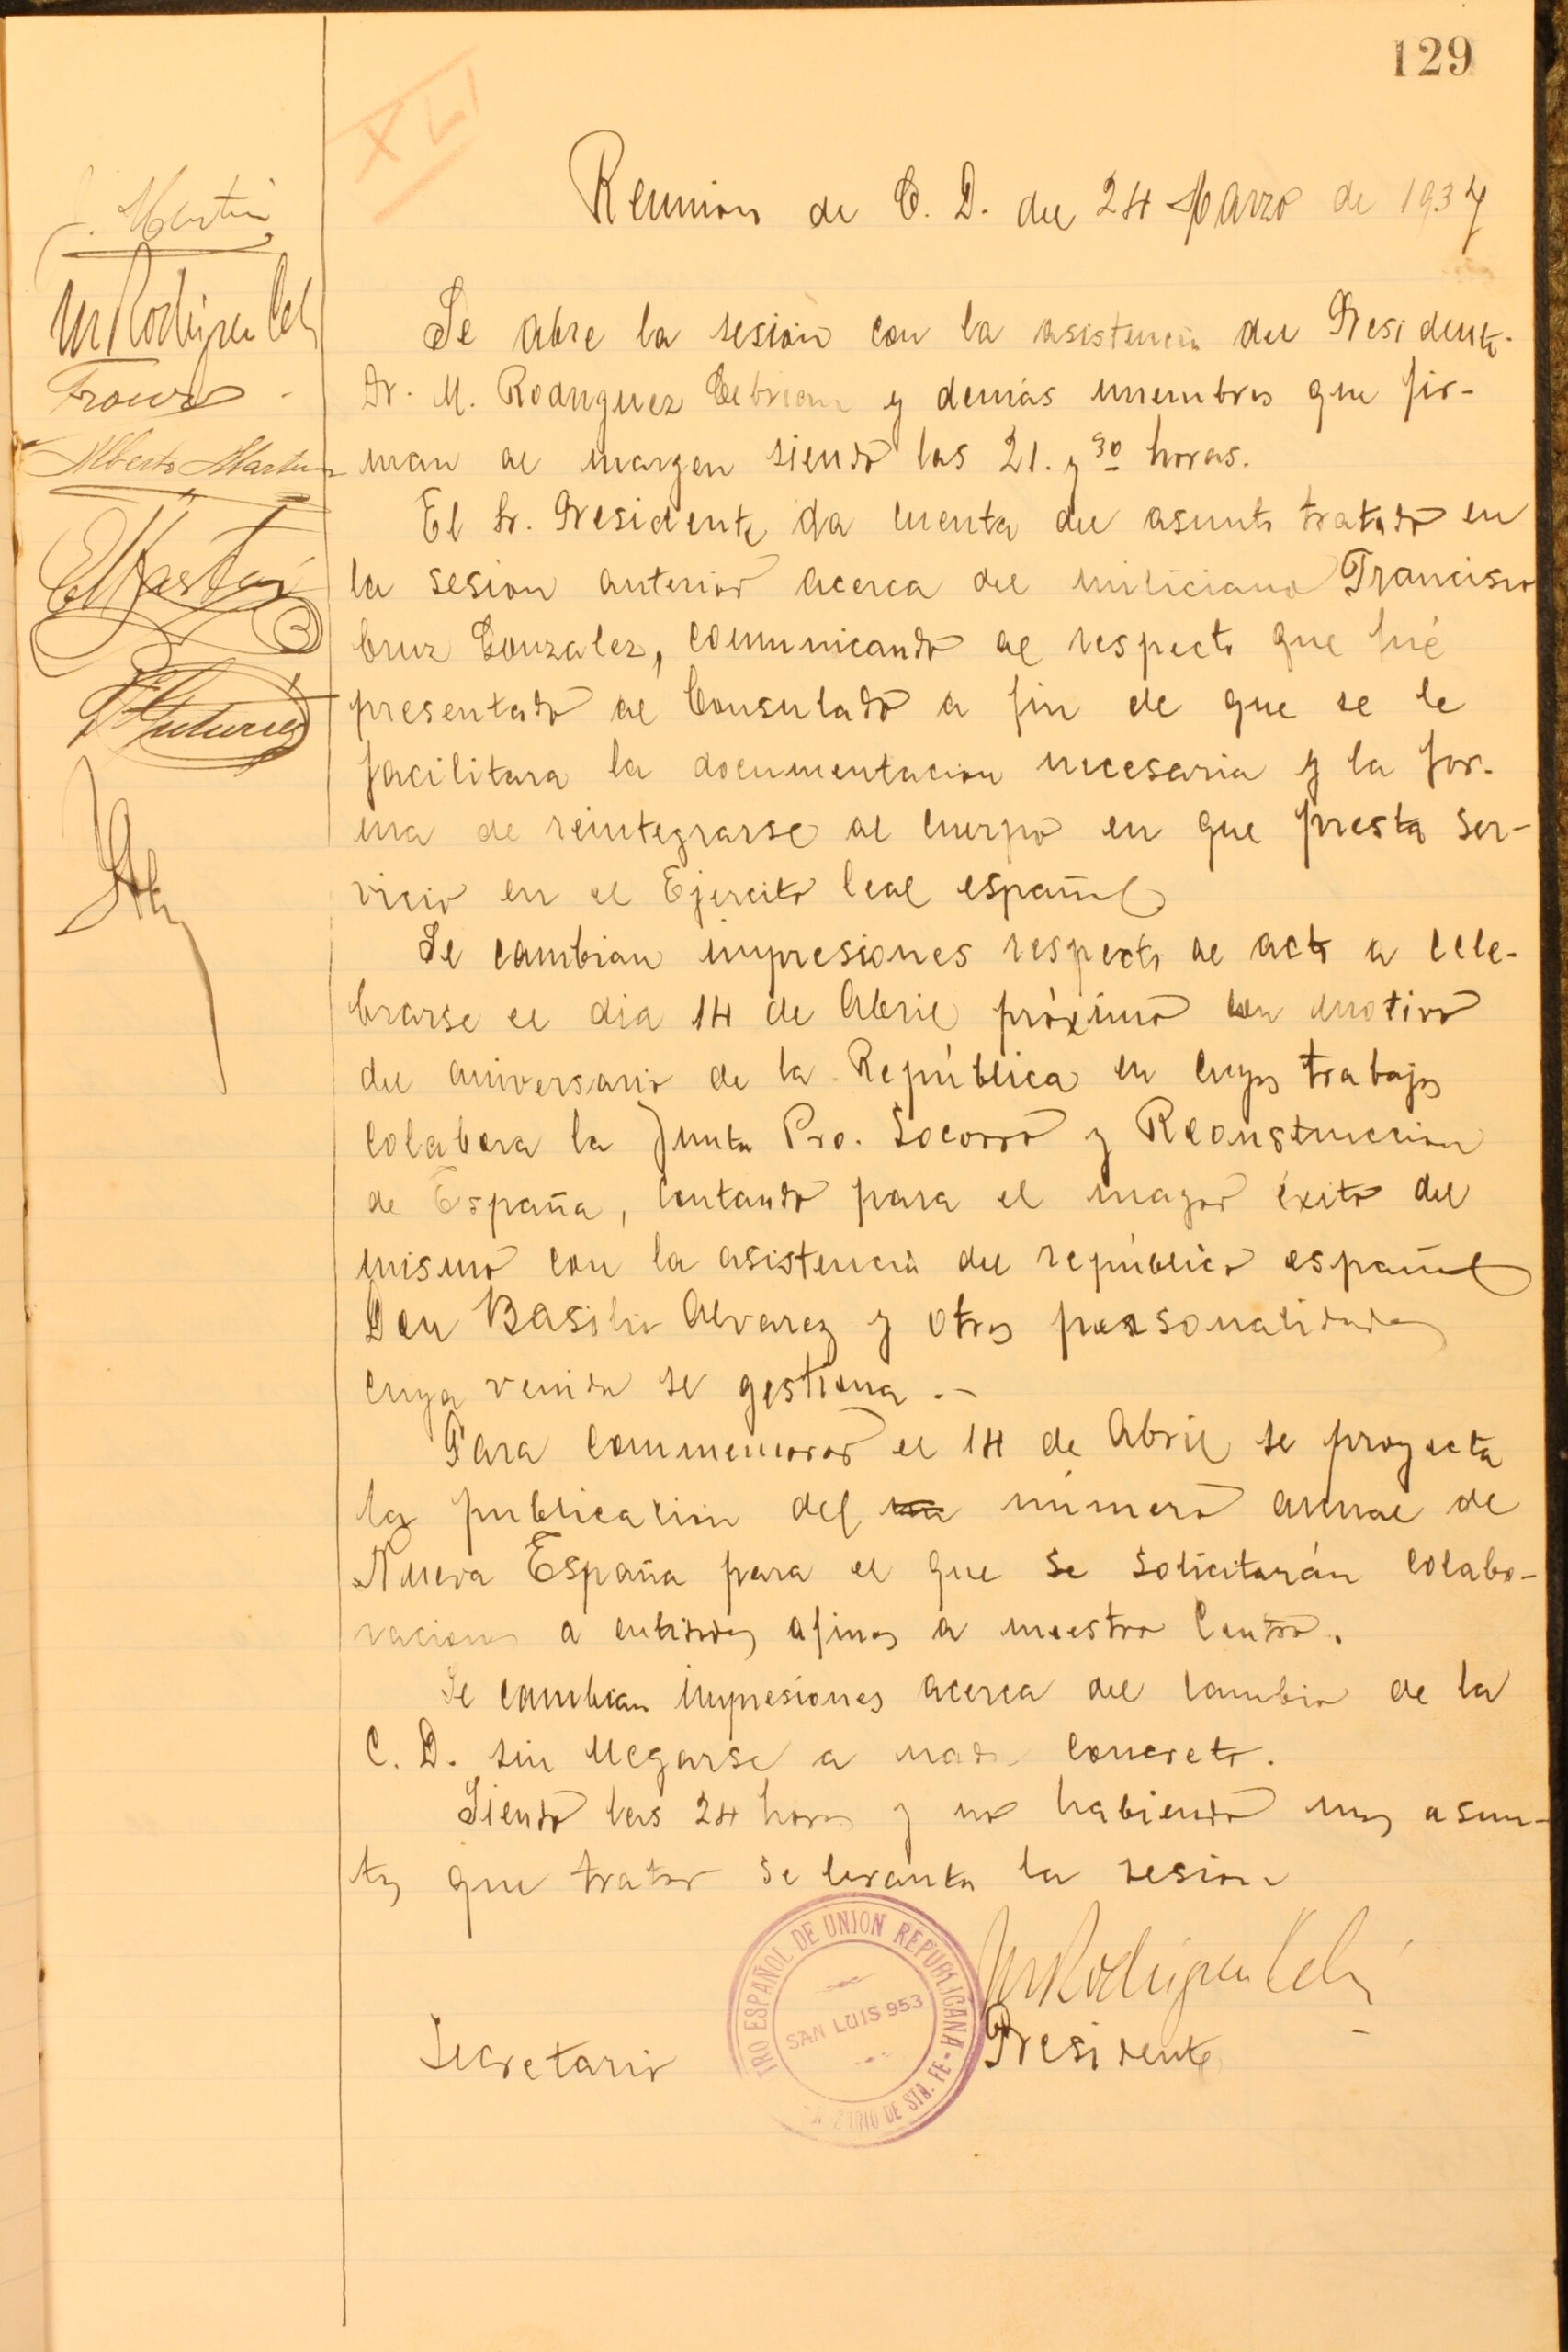 129
XLI
Reunion de C. D. del 24 Marzo de 1937
Martin
M Rodriguez Ceb
Alberto Martin
E Mastai
Se abre la sesión con la asistencia del Presidente
Dr. M. Rodriguez Cebrian y demás miembros que fir-
man al margen siendo las 21. y 30 horas.
El Sr. Presidente da cuenta del asunto tratado en
la sesion anterior acerca del miliciano Francisco
Cruz Gonzalez, comunicando al respecto que fué
presentado al Consulado a fin de que se le
facilitara la documentacion necesaria y la for-
ma de reintegrarse al cuerpo en que presta ser-
vicio en el Ejercito leal español
Se cambian impresiones respecto al acto a cele-
brarse el dia 14 de Abril próximo con motivo
del aniversario de la República en cuyos trabajos
colabora la Junta Pro. Socorro y Reconstruccion
de España, contando para el mayor éxito del
mismo con la asistencia del repúblico español
Don Basilio Alvarez y otras personalidades
cuya venida se gestiona.-
Para conmemorar el 14 de Abril se proyecta
la publicacion del número anual de
Nueva España para el que se solicitarán colabo-
raciones a entidades afines a nuestro Centro.
Se cambian impresiones acerca del cambio de la
C. D. sin llegarse a nada concreto.
Siendo las 24 horas y no habiendo mas asun-
tos que tratar se levanta la sesion
M Rodriguez Ceb
Secretario
Presidente
TRO ESPAÑOL DE UNION REPUBLICANA - 
SAN LUIS 953
SARIO DE STA. FE